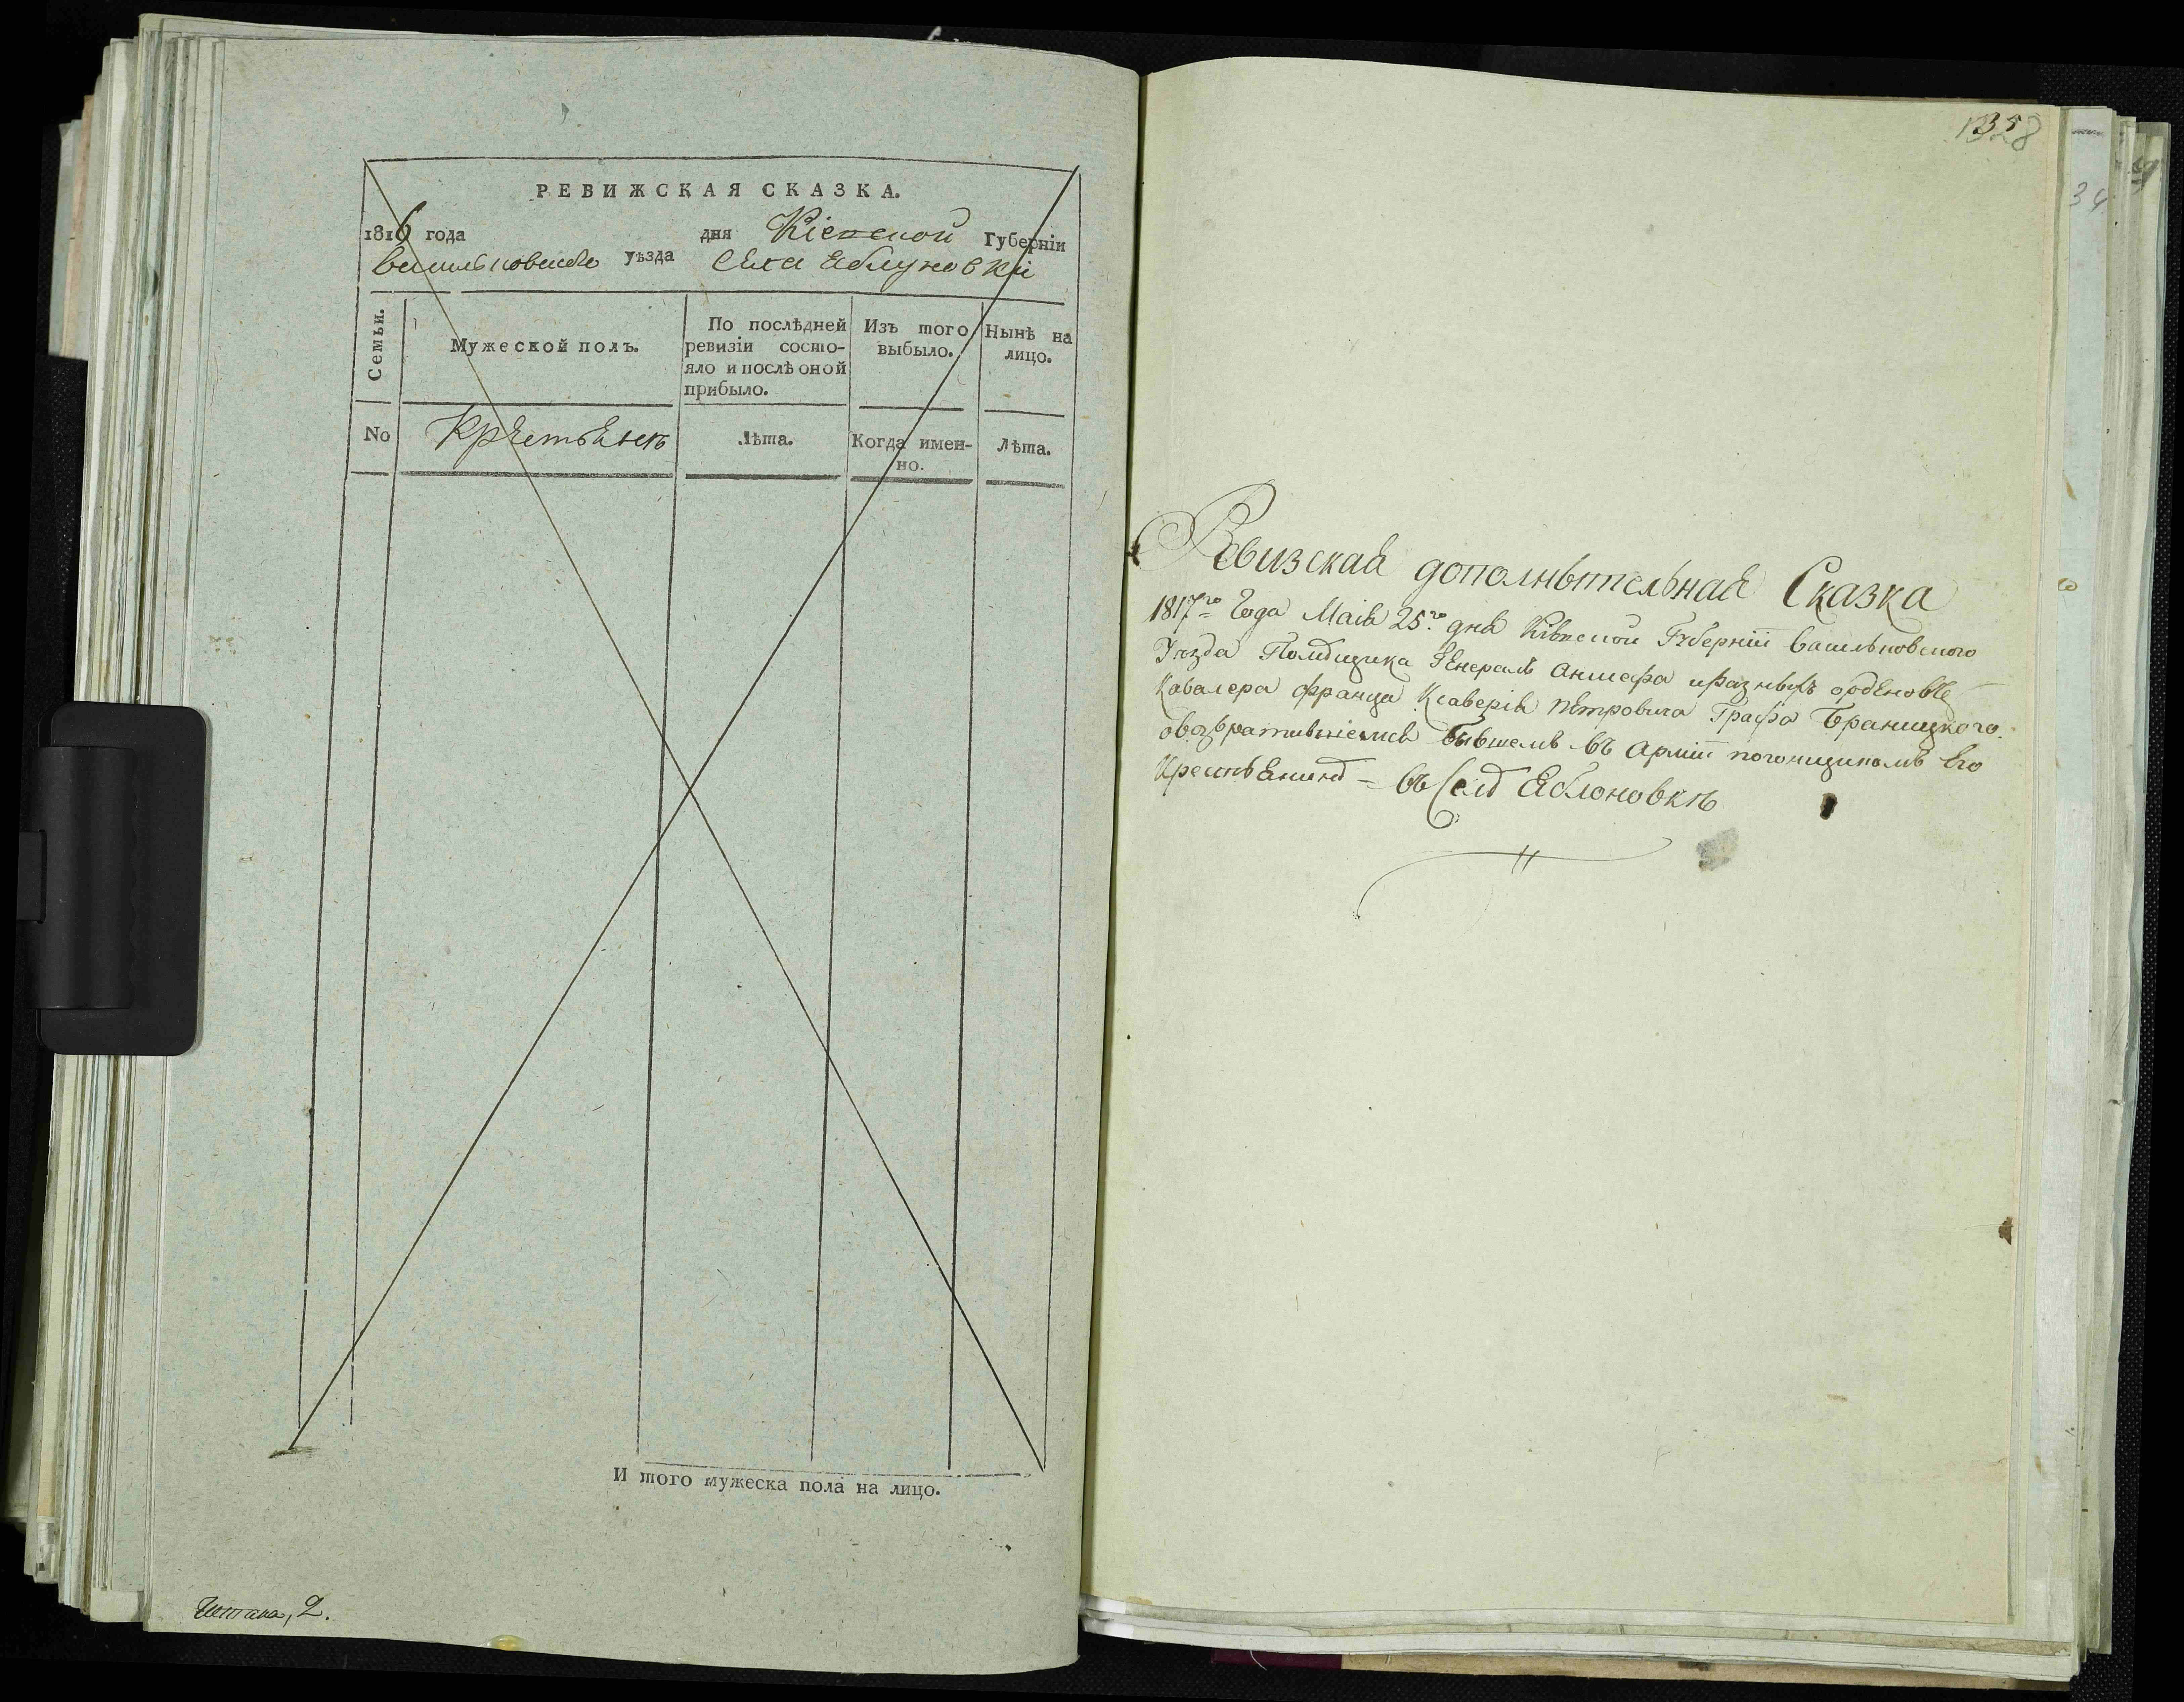 РЕВИЖСКАЯ СКАЗКА.
1816 года дня Кіевской Губерніи
Васильковскаго уѣзда Села Яблуновки
Семьи.
Мужеской полъ.
По послѣдней
ревизіи состо-
яло и послѣ оной
прибыло.
Изъ того
выбыло.
Нынѣ на
лицо.
No
Крѣстьянъ
Лѣта.
Когда имен-
но.
Лѣта.
И того мужеска пола на лицо.
2.
Ревизская дополнытельная Сказка
1817го Года Маія 25го дня Кіевской Губерніи Васильковского
Уѣзда Помѣщика Генералъ Аншефа и разныхъ орденовъ
Кавалера Франца Ксаверія Петровича Графа Браницкого.
овозвратившемся бывшемъ въ Арміи погонщикомъ Его
Крестьянинѣ - въ Селѣ Яблоновкѣ
34